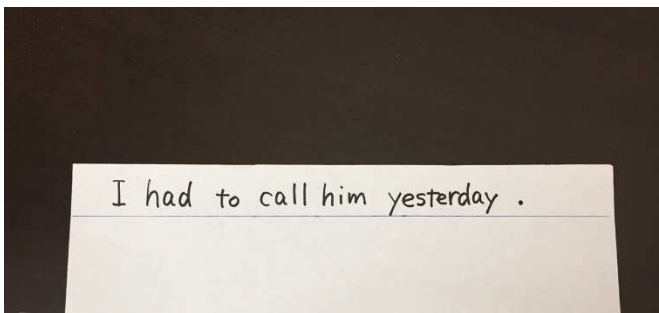 I had to call him yesterday .